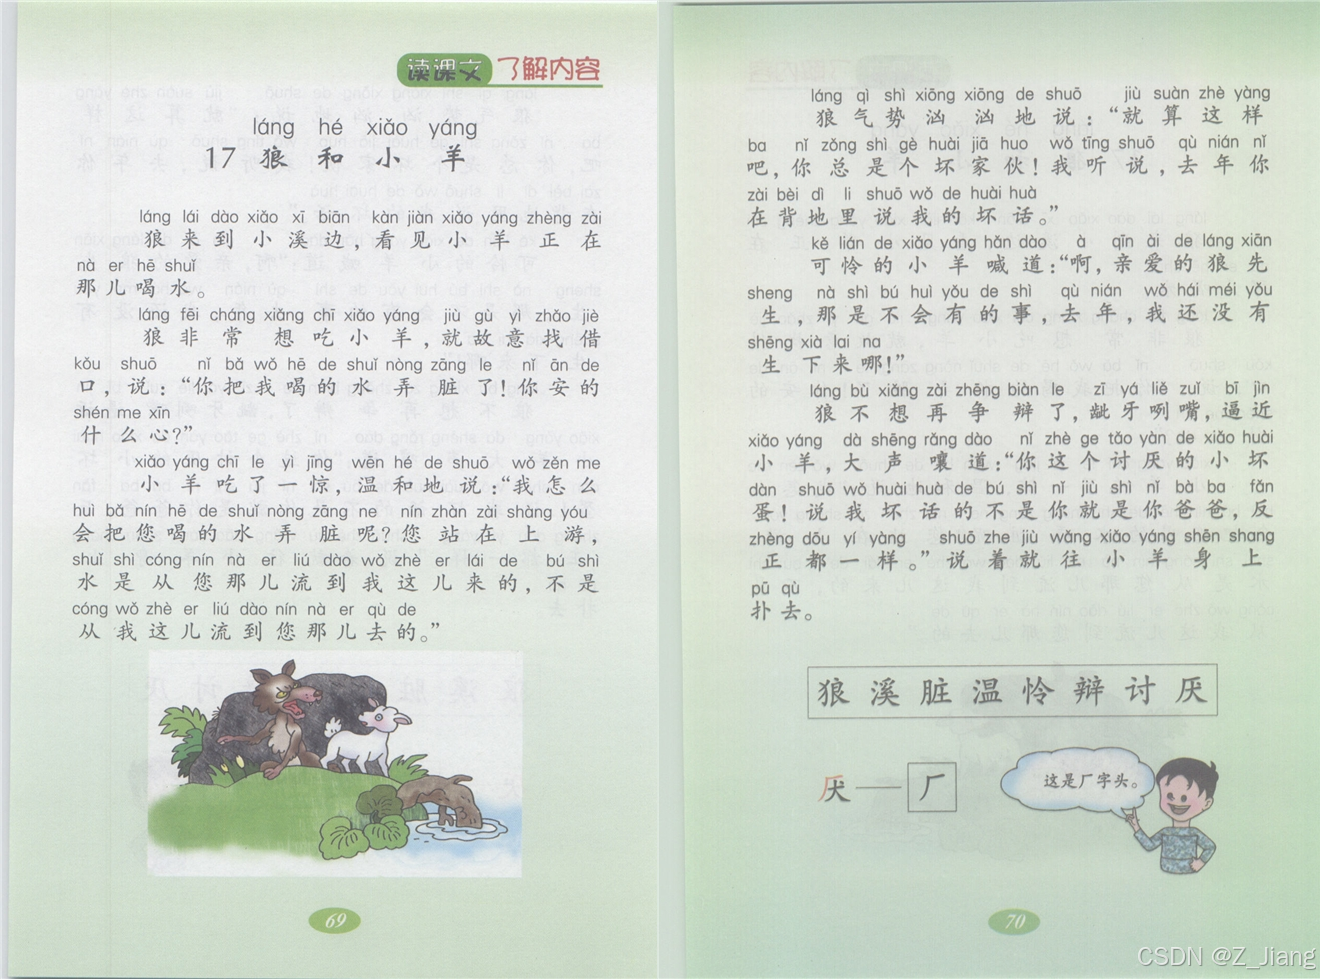 读课文 了解内容
láng hé xiǎo yáng
17 狼 和 小 羊
láng lái dào xiǎo xī biān kàn jiàn xiǎo yáng zhèng zài
狼 来 到 小 溪 边，看 见 小 羊 正 在
nà er hē shuǐ
那 儿 喝 水。
láng fēi cháng xiǎng chī xiǎo yáng jiù gù yì zhǎo jiè
狼 非 常 想 吃 小 羊，就 故 意 找 借
kǒu shuō nǐ bǎ wǒ hē de shuǐ nòng zāng le nǐ ān de
口，说：“你 把 我 喝 的 水 弄 脏 了！你 安 的
shén me xīn
什 么 心？”
xiǎo yáng chī le yì jīng wēn hé de shuō wǒ zěn me
小 羊 吃 了 一 惊，温 和 地 说：“我 怎 么
huì bǎ nín hē de shuǐ nòng zāng ne nín zhàn zài shàng yóu
会 把 您 喝 的 水 弄 脏 呢？您 站 在 上 游，
shuǐ shì cóng nín nà er liú dào wǒ zhè er lái de bú shì
水 是 从 您 那 儿 流 到 我 这 儿 来 的，不 是
cóng wǒ zhè er liú dào nín nà er qù de
从 我 这 儿 流 到 您 那 儿 去 的。”
69
láng qì shì xiōng xiōng de shuō jiù suàn zhè yàng
狼 气 势 汹 汹 地 说：“就 算 这 样
ba nǐ zǒng shì gè huài jiā huo wǒ tīng shuō qù nián nǐ
吧，你 总 是 个 坏 家 伙！我 听 说，去 年 你
zài bèi dì li shuō wǒ de huài huà
在 背 地 里 说 我 的 坏 话。”
kě lián de xiǎo yáng hǎn dào à qīn ài de láng xiān
可 怜 的 小 羊 喊 道：“啊，亲 爱 的 狼 先
sheng nà shì bú huì yǒu de shì qù nián wǒ hái méi yǒu
生，那 是 不 会 有 的 事，去 年，我 还 没 有
shēng xià lai na
生 下 来 哪！”
láng bù xiǎng zài zhēng biàn le zī yá liě zuǐ bī jìn
狼 不 想 再 争 辩 了，龇 牙 咧 嘴，逼 近
xiǎo yáng dà shēng rǎng dào nǐ zhè ge tǎo yàn de xiǎo huài
小 羊，大 声 嚷 道：“你 这 个 讨 厌 的 小 坏
dàn shuō wǒ huài huà de bú shì nǐ jiù shì nǐ bà ba fǎn
蛋！说 我 坏 话 的 不 是 你 就 是 你 爸 爸，反
zhèng dōu yí yàng shuō zhe jiù wǎng xiǎo yáng shēn shang
正 都 一 样。”说 着 就 往 小 羊 身 上
pū qù
扑 去。
狼 溪 脏 温 怜 辩 讨 厌
厌——厂
这是厂字头。
70
CSDN @Z_Jiang